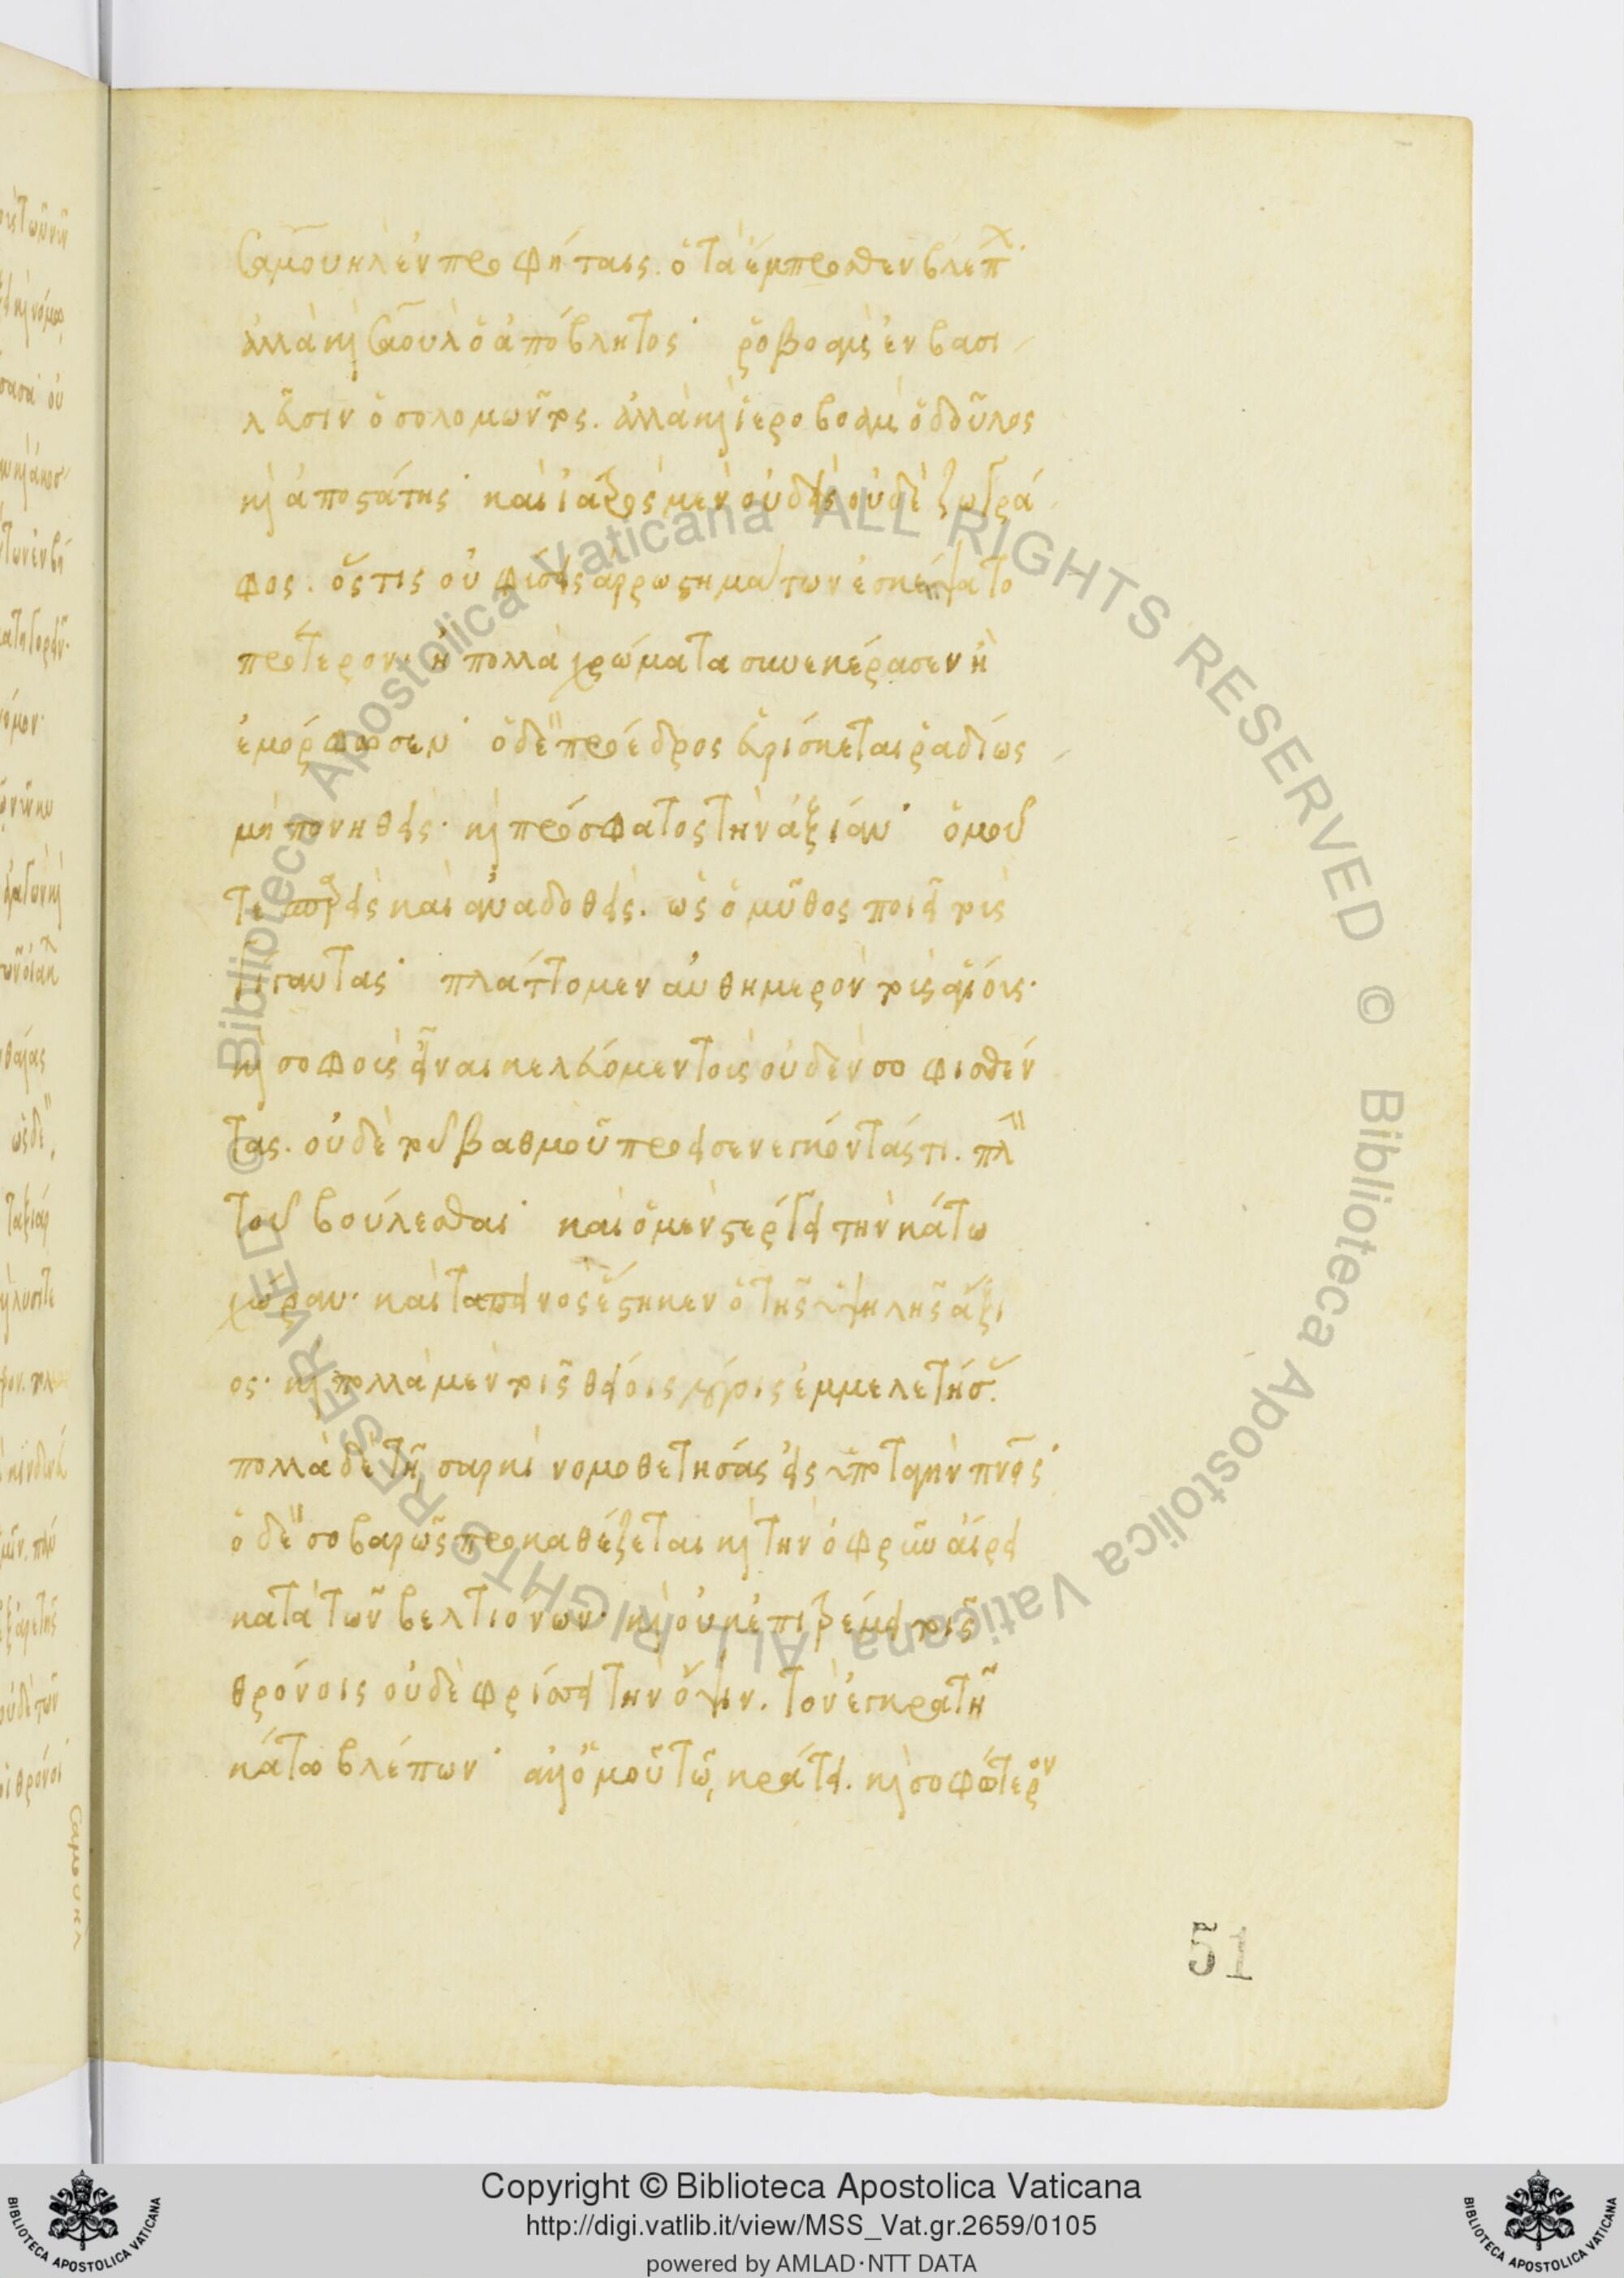 Σαμουὴλ ἐν προφήταις. ὁ τὰ ἔμπροσθεν βλέπ
ἀλλὰ κὶ Σαοὺλ ὁ ἀπόβλητος· ῥοβοὰμ ἐν βασι
λεῦσιν ὁ σολομῶντος. ἀλλὰ κὶ ἱεροβοὰμ ὁ δοῦλος
κὶ ἀποστάτης· καὶ ἰατρὸς μὲν οὐδεὶς οὐδὲ ζωγρά
φος. ὅστις οὐ φύσεις ἀρρωστημάτων ἐσκέψατο
πρότερον· ἢ πολλὰ χρώματα συνεκέρασεν ἢ
ἐμόρφωσεν· ὁ δὲ πρόεδρος εὑρίσκεται ῥαδίως
μὴ πονηθεὶς· κὶ πρόσφατος τὴν ἀξίαν· ὁμοῦ
τε σπαρεὶς καὶ ἀναδοθεὶς. ὡς ὁ μῦθος ποιεῖ τοὺς
γίγαντας· πλάττομεν αὐθημερὸν τοὺς ἁγίους·
κὶ σοφοὺς εἶναι κελεύομεν τοὺς οὐδὲν σοφισθέν
τας. οὐδὲ τοῦ βαθμοῦ προεισενεγκόντάς τι. πλ
τοῦ βούλεσθαι· καὶ ὁ μὲν στέργει τὴν κάτω
χώραν· καὶ ταπεινὸς ἕστηκεν ὁ τῆς ὑψηλῆς ἄξι
ος· κὶ πολλὰ μὲν τοῖς θείοις λόγοις ἐμμελετήσ
πολλὰ δὲ τῇ σαρκὶ νομοθετήσας εἰς ὑποταγὴν πνς·
ὁ δὲ σοβαρῶς προκαθέζεται κὶ τὴν ὀφρῦν αἴρει
κατὰ τῶν βελτιόνων· κὶ οὐκ ἐπιτρέμει τοῖς
θρόνοις οὐδὲ φρίσσει τὴν ὄψιν. τὸν ἐγκρατῆ
κάτω βλέπων· ἀλλ' ὁμοῦ τῷ κράτει. κὶ σοφώτερον
51
Copyright © Biblioteca Apostolica Vaticana
http://digi.vatlib.it/view/MSS_Vat.gr.2659/0105
powered by AMLAD·NTT DATA